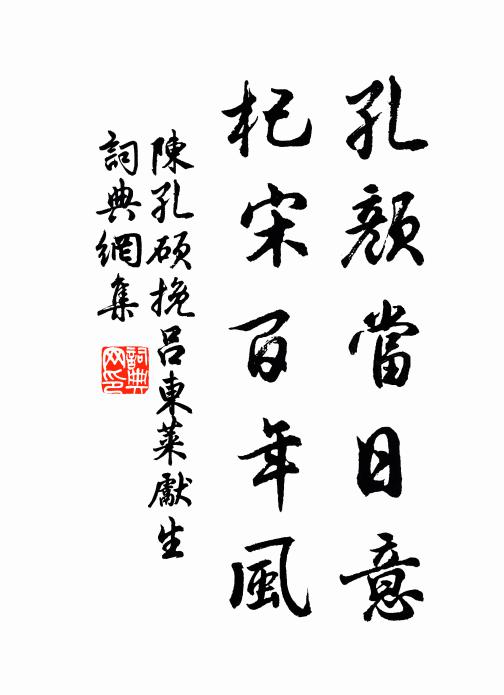 孔顏當日意
杞宋百年風
陳孔碩挽呂東萊獻生
詞典網集
詞典
网印